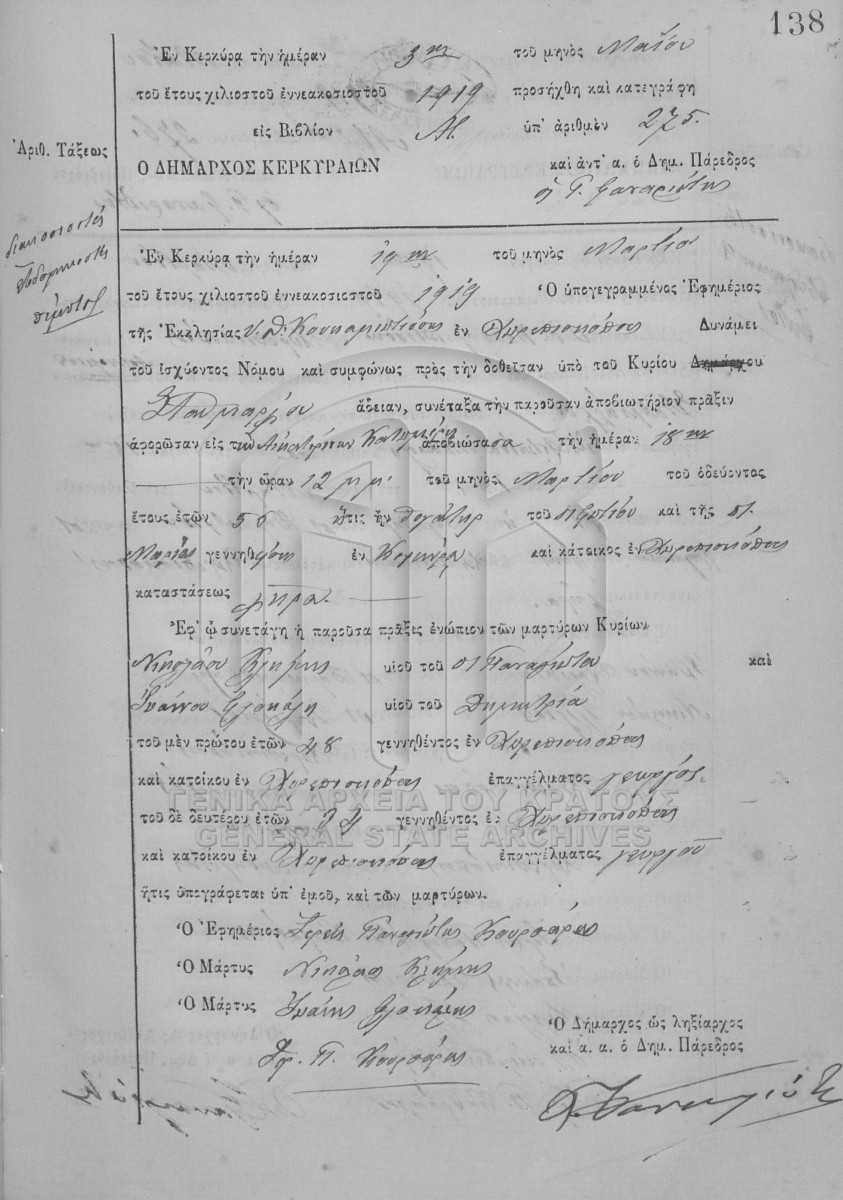 138
Ἐν Κερκύρᾳ τὴν ἡμέραν 3ην τοῦ μηνὸς Μαΐου
τοῦ ἔτους χιλιοστοῦ ἐννεακοσιοστοῦ 1919 προσήχθη καὶ κατεγράφη
εἰς Βιβλίον ὑπ' ἀριθμὸν 275.
Ἀριθ. Τάξεως
Ο ΔΗΜΑΡΧΟΣ ΚΕΡΚΥΡΑΙΩΝ καὶ ἀντ' α. ὁ Δημ. Πάρεδρος
διακοσιοστὸς
ἑβδομηκοστὸς
πέμπτος
Ἐν Κερκύρᾳ τὴν ἡμέραν 19ην τοῦ μηνὸς Μαρτίου
τοῦ ἔτους χιλιοστοῦ ἐννεακοσιοστοῦ 1919 Ὁ ὑπογεγραμμένος Ἐφημέριος
τῆς Ἐκκλησίας ἐν Χωρεπισκόπους Δυνάμει
τοῦ ἰσχύοντος Νόμου καὶ συμφώνως πρὸς τὴν δοθεῖσαν ὑπὸ τοῦ Κυρίου Δημάρχου
ἄδειαν, συνέταξα τὴν παροῦσαν ἀποβιωτήριον πρᾶξιν
ἀφορῶσαν εἰς τὴν Αἰκατερίναν ἀποβιώσασα τὴν ἡμέραν 18ην
τὴν ὥραν 12 μ.μ. τοῦ μηνὸς Μαρτίου τοῦ ὁδεύοντος
ἔτους ἐτῶν 56 ἥτις ἦν θυγάτηρ τοῦ καὶ τῆς
Μαρίας γεννηθείσης ἐν καὶ κάτοικος ἐν Χωρεπισκόπους
καταστάσεως χήρα.
Ἐφ' ᾧ συνετάγη ἡ παροῦσα πρᾶξις ἐνώπιον τῶν μαρτύρων Κυρίων
Νικολάου Κλήμης υἱοῦ τοῦ Παναγιώτου καὶ
Ἰωάννου υἱοῦ τοῦ Δημητρίου
τοῦ μὲν πρώτου ἐτῶν 48 γεννηθέντος ἐν Χωρεπισκόπους
καὶ κατοίκου ἐν Χωρεπισκόπους ἐπαγγέλματος γεωργός.
ΓΕΝΙΚΑ ΑΡΧΕΙΑ ΤΟΥ ΚΡΑΤΟΥΣ
τοῦ δὲ δευτέρου ἐτῶν 34 γεννηθέντος ἐν Χωρεπισκόπους
GENERAL STATE ARCHIVES
καὶ κατοίκου ἐν Χωρεπισκόπους ἐπαγγέλματος γεωργοῦ
ἥτις ὑπογράφεται ὑπ' ἐμοῦ, καὶ τῶν μαρτύρων.
Ὁ Ἐφημέριος Ἱερεὺς Παναγιώτης Κουρσάρης
Ὁ Μάρτυς Νικόλαος Κλήμης
Ὁ Μάρτυς Ἰωάννης
Ὁ Δήμαρχος ὡς ληξίαρχος
καὶ α. α. ὁ Δημ. Πάρεδρος
Ἱερ. Π. Κουρσάρης